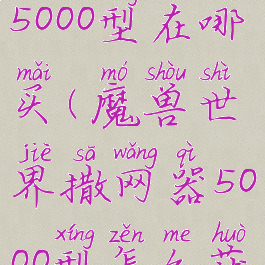 5000型在哪
mǎi mó shòu shì
买(魔兽世
jiè sā wǎng qì
界撒网器50
xíng zěn me huò
00型怎么获